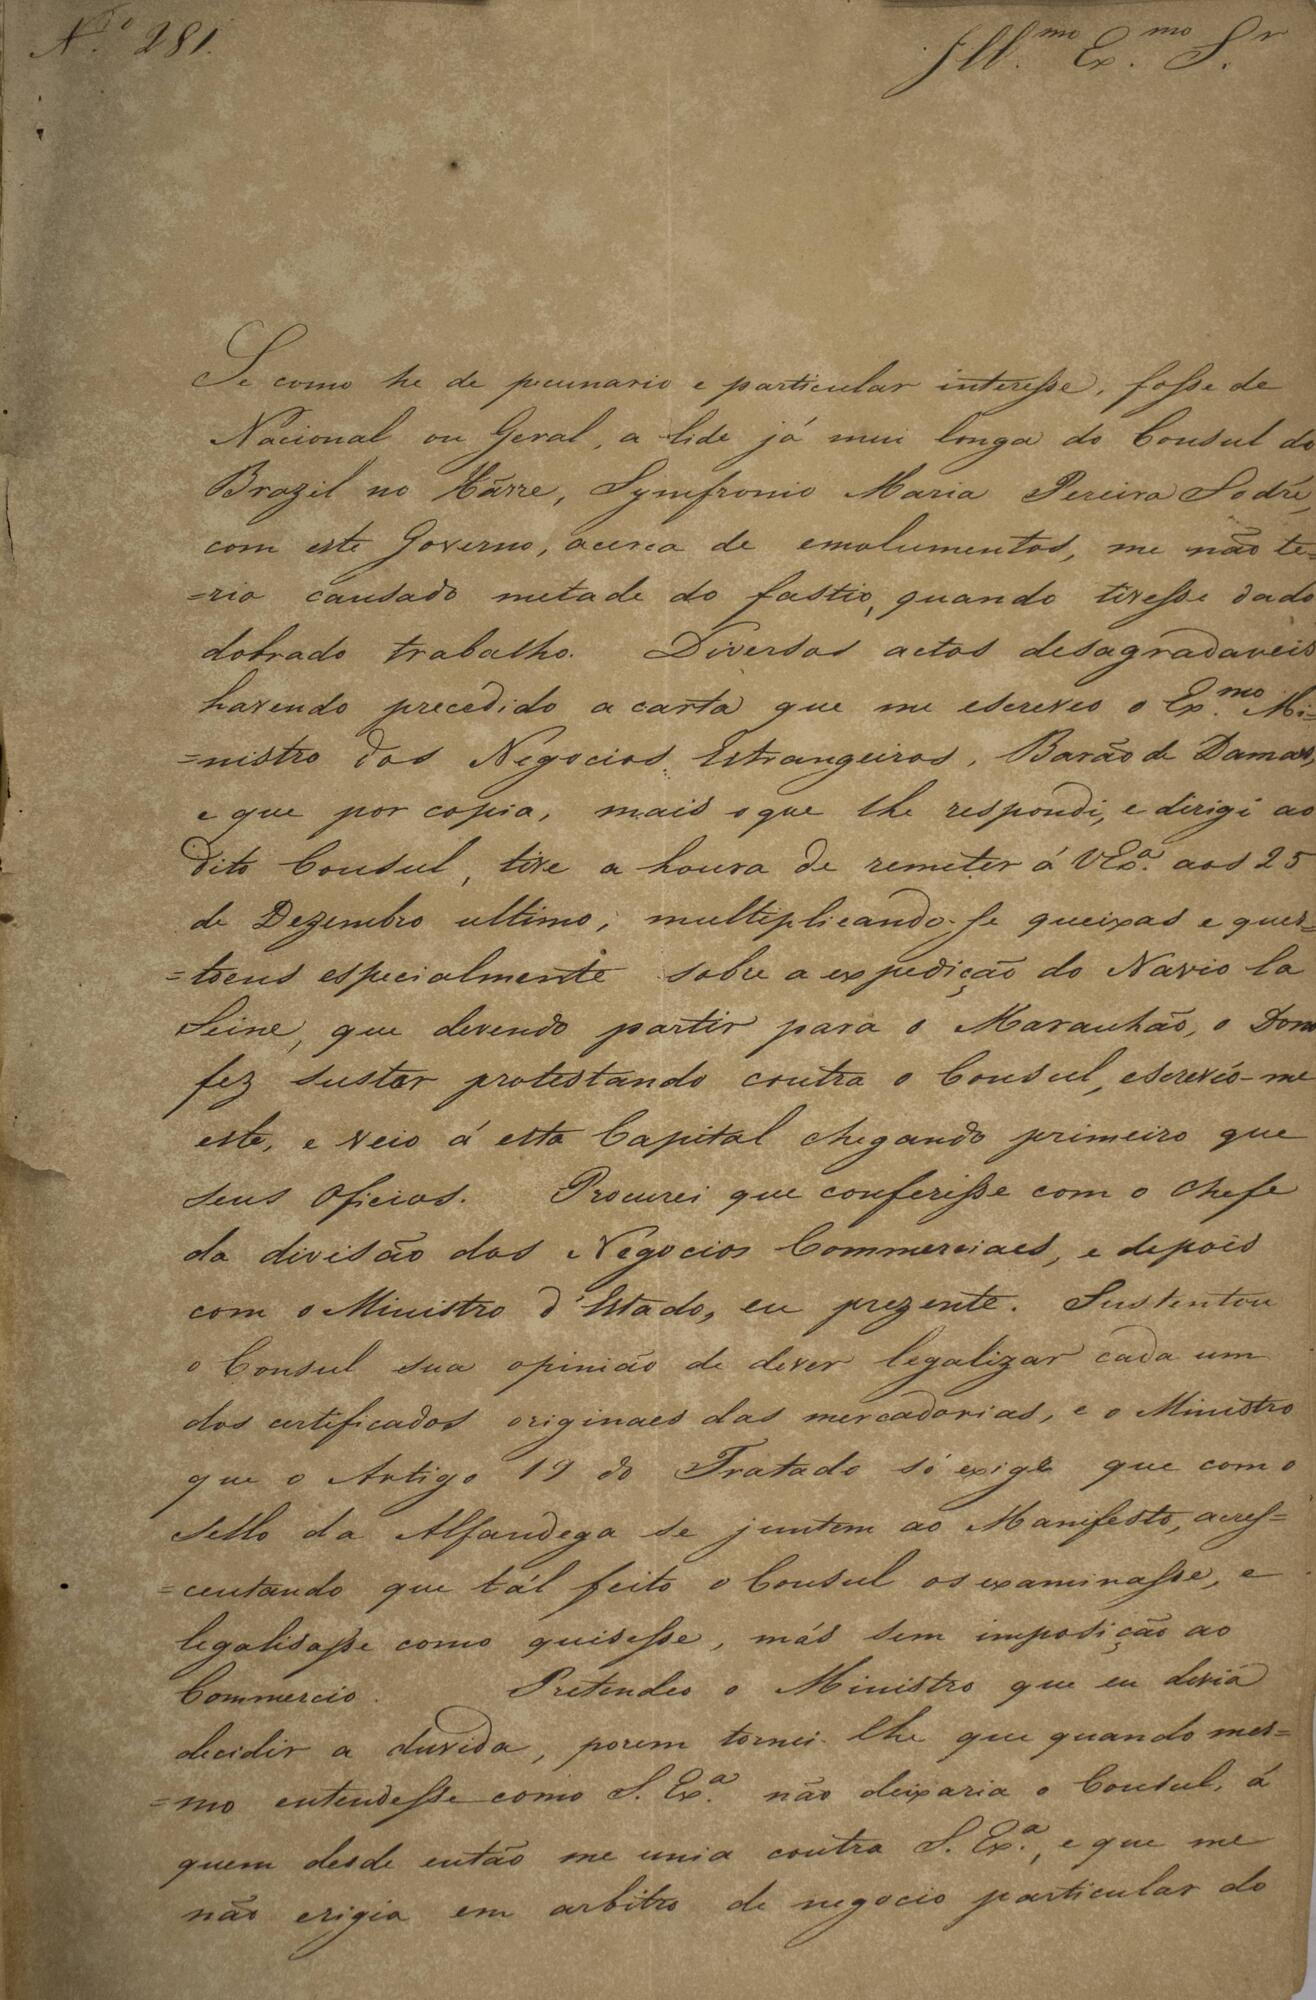 N.º 281.
Ill.mo Ex.mo S.r
Se como he de pecunario e particular interesse, fosse de
Nacional ou Geral, a lide já mui longa do Consul do
Brazil no Hâvre, Symfronio Maria Pereira Sodré,
com este Governo, acerca de emolumentos, me não te-
=ria causado metade do fastio, quando tivesse dado
dobrado trabalho. Diversos actos desagradaveis
havendo precedido a carta que me escreveo o Ex.mo Mi-
=nistro dos Negocios Estrangeiros, Barão de Damas,
e que por copia, mais o que lhe respondi, e dirigi ao
dito Consul, tive a honra de remeter á VEx.a aos 25
de Dezembro ultimo, multiplicando-se queixas e ques=
=toens especialmente sobre a expedição do Navio la
Seine, que devendo partir para o Maranhão, o Dono
fez sustar protestando contra o Consul, escrevéo-me
este, e veio á esta Capital chegando primeiro que
seus Oficios. Procurei que conferisse com o chefe
da divisão dos Negocios Commerciaes, e depois
com o Ministro d'Estado, eu prezente. Sustentou
o Consul sua opinião de dever legalizar cada um
dos certificados originaes das mercadorias, e o Ministro
que o Artigo 19 do Tratado só exige que com o
sello da Alfandega se juntem ao Manifesto, acres=
=centando que tál feito o Consul os examinasse, e
legalisasse como quisesse, más sem imposição ao
Commercio. Pretendeo o Ministro que eu deviá
decidir a duvida, porem tornei-lhe que quando mes=
=mo entendesse como S. Ex.a não deixaria o Consul, á
quem desde então me unia contra S. Ex.a, e que me
não erigia em arbitro de negocio particular do